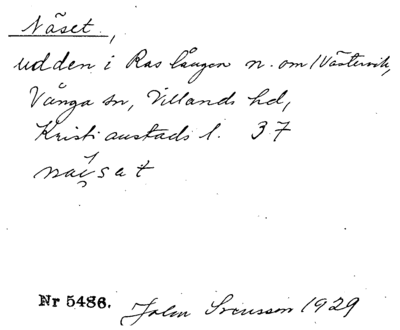 Näset,
udden i Raslången n. om Västervik,
Vånga sn, Villands hd,
Kristianstads l. 37
näsat
Nr 5486. John Svensson 1929